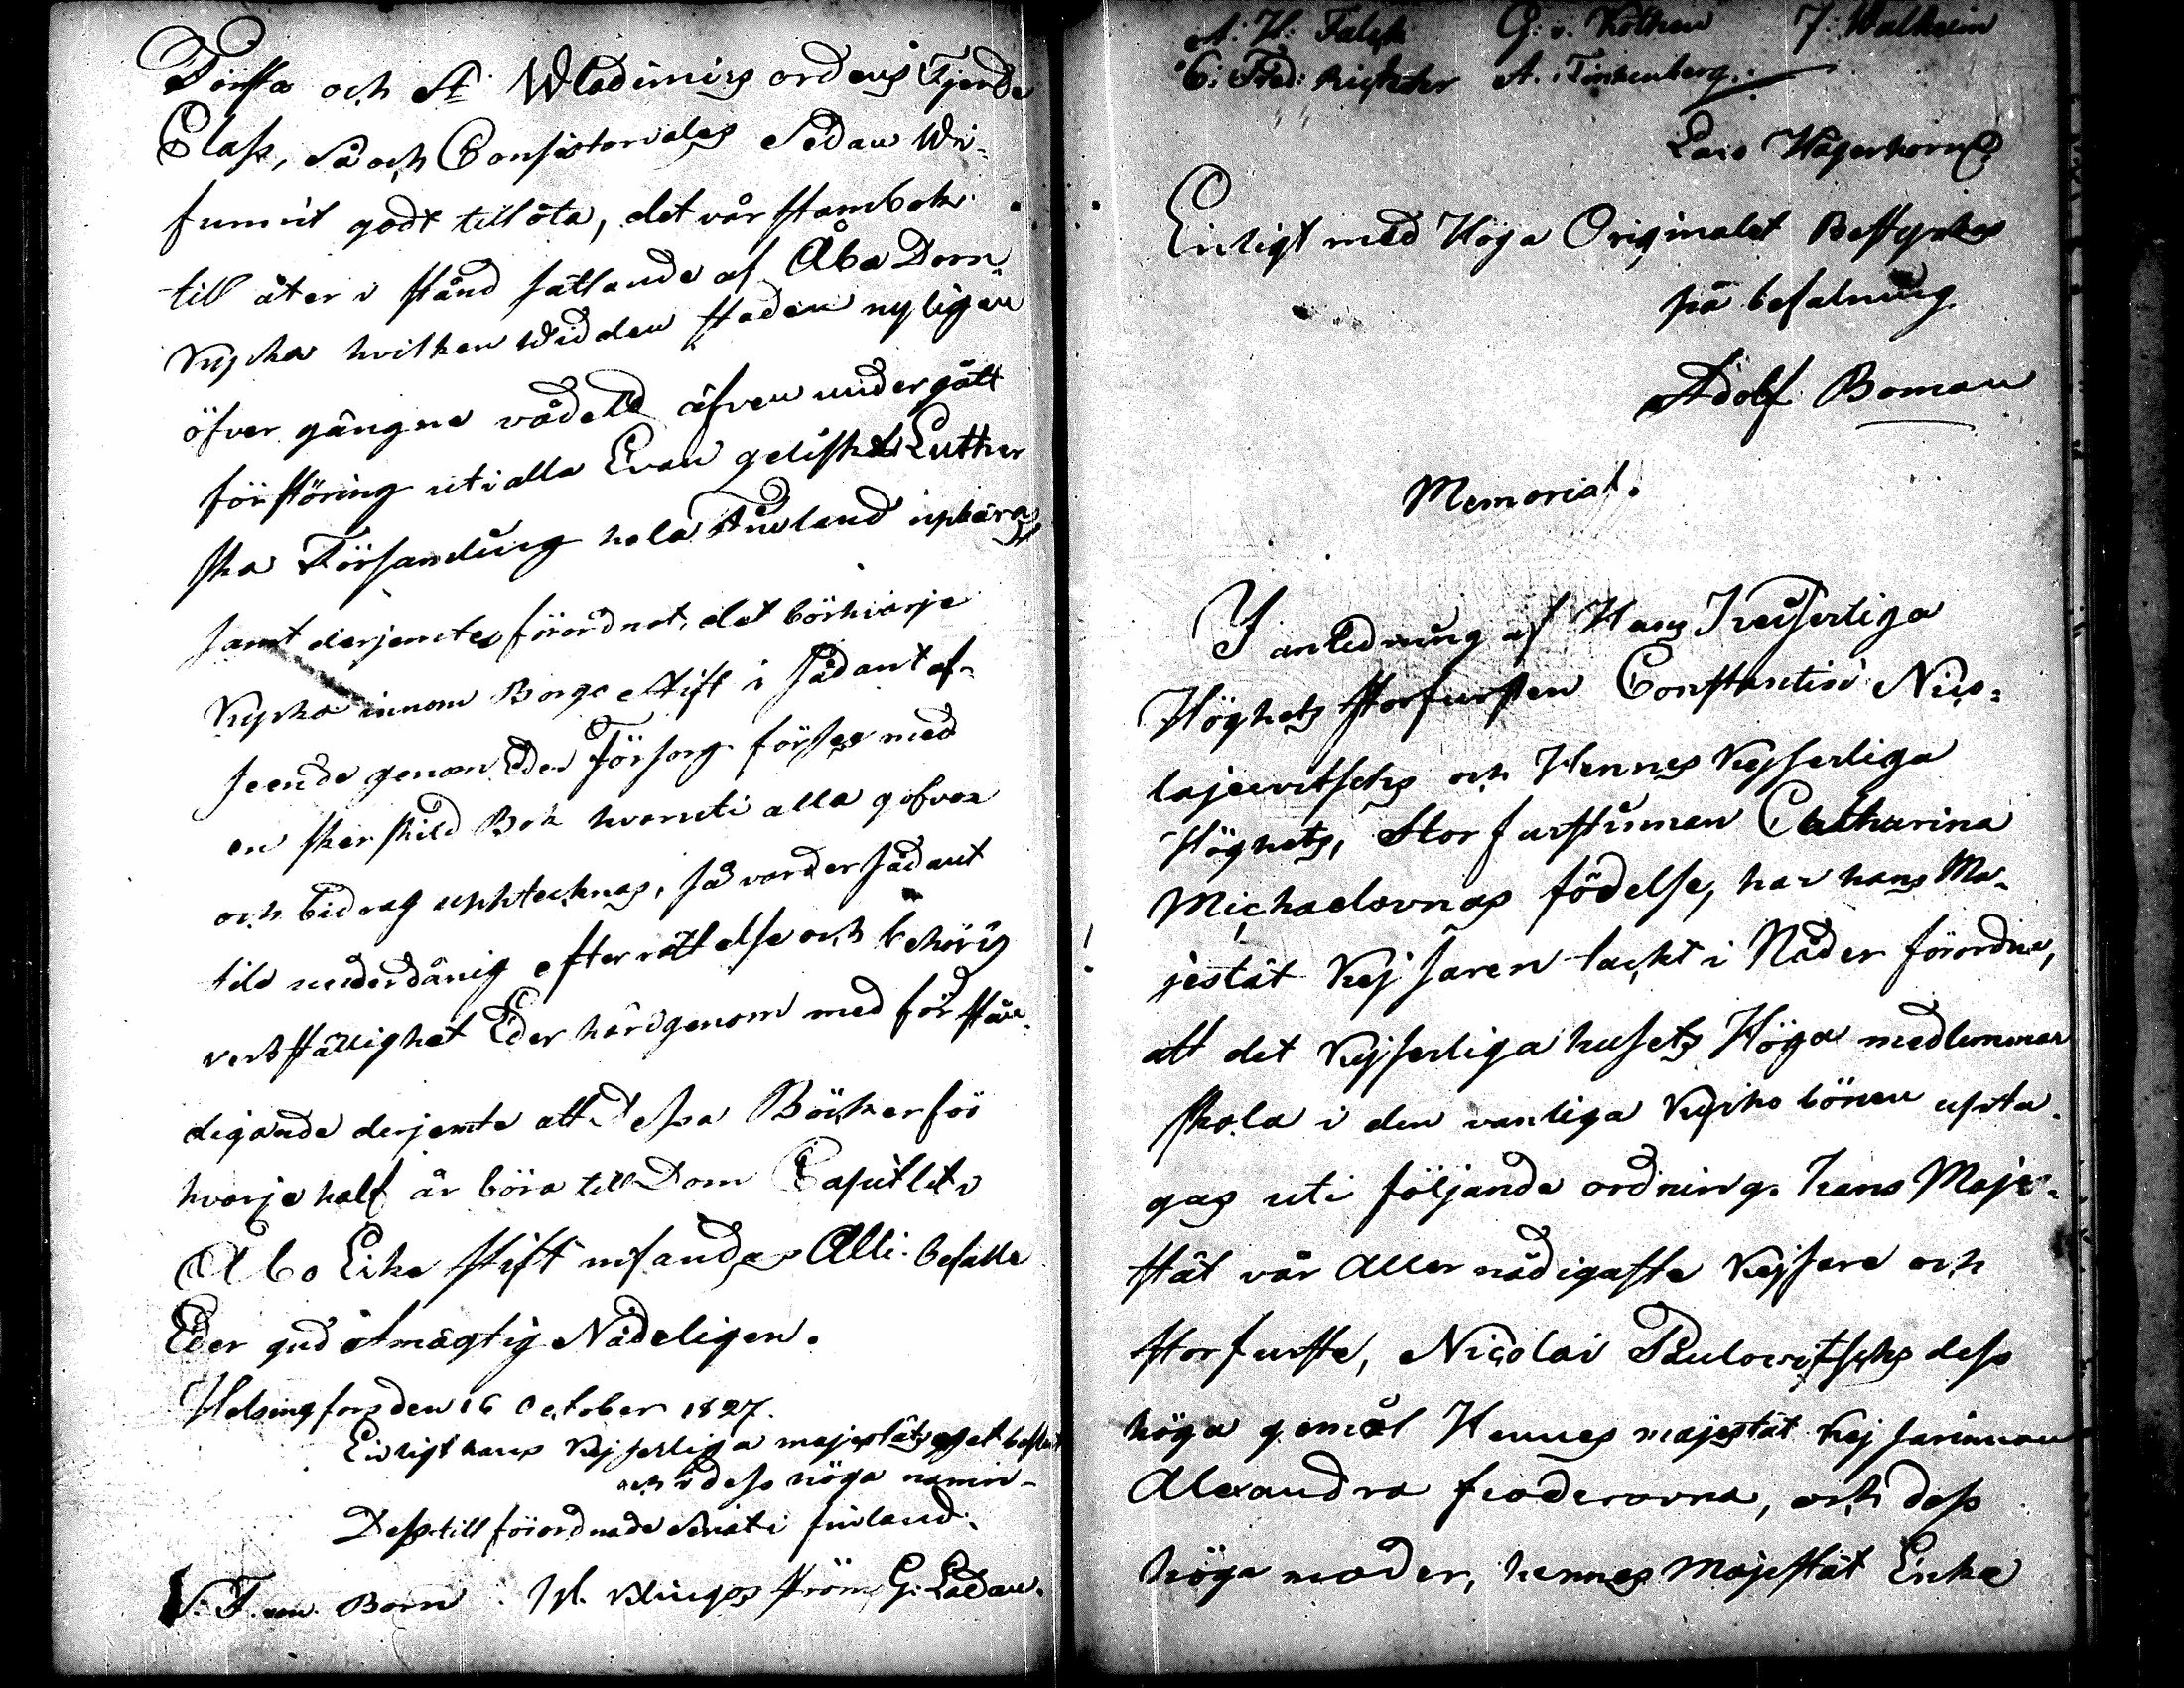 Första och St Wladimirs ordens Fjerde
Class, Så och Consistoriales Sedan Wi-
funnit godt tillåta, det vår stambok
till åter i stånd sättande af Åbo Dom
Kyrka hvilken wid den staden nyligen
öfver gångne vådeld äfven undergått
förstöring uti alla Evan geliska Luther
ska Församling hela Finland upbäras
samt derjemte förordnat, det bör hvarje
Kyrka innom Borgo Stift i sådant af-
seende genom Eder Försorg förses med
en sker skild Bok hvaruti alla gofvor
och bidrag upptecknas, så varder sådant
till underdånig efter rättelse och behörig
verkställighet Eder härigenom med förstän-
digande derjemte att dessa Böcker för
hvarje half år böra till Dom Capitlet i
Åbo Erke stift insandas Alli befalle
Eder gud Almägtig Nådeligen.
Helsingfors den 16 October 1827.
Enligt hans Kejserliga majestäts eget beslut
och i dess höga namn-
Dess till förordnade Senat i finland.
V. F. von Born M. Klingos ström G. Ladau.
A: H: Falck G: v. Kothen J: Walheim
C: Fred: Richter A. Tinkenberg.
Lars Hägerhorn
Enligt med Höga Originalet Bestyrkes
på befalning
Adolf Boman
Memorial.
I anledning af Hans Keiserliga
Höghets Storfursten Constantin Nico-
lajewitschs och Hennes Kejserliga
Höghets, Stor furstinnan Catharina
Michaelovnas födelse, har hans Ma-
jestät Kej saren täckt i Nåder förordna,
att det Kejserliga husets Höga medlemmar
skola i den vanliga Kyrko bönen upta-
gas uti följande ordning. hans Maje-
stät vår Aller nådigaste Kejsare och
storfurste, Nicolai Paulowitschs dess
höga gemål Hennes majestät Kej sarinnan
Alexandra feoderovna, och dess
höga moder, hennes Majestät Enke